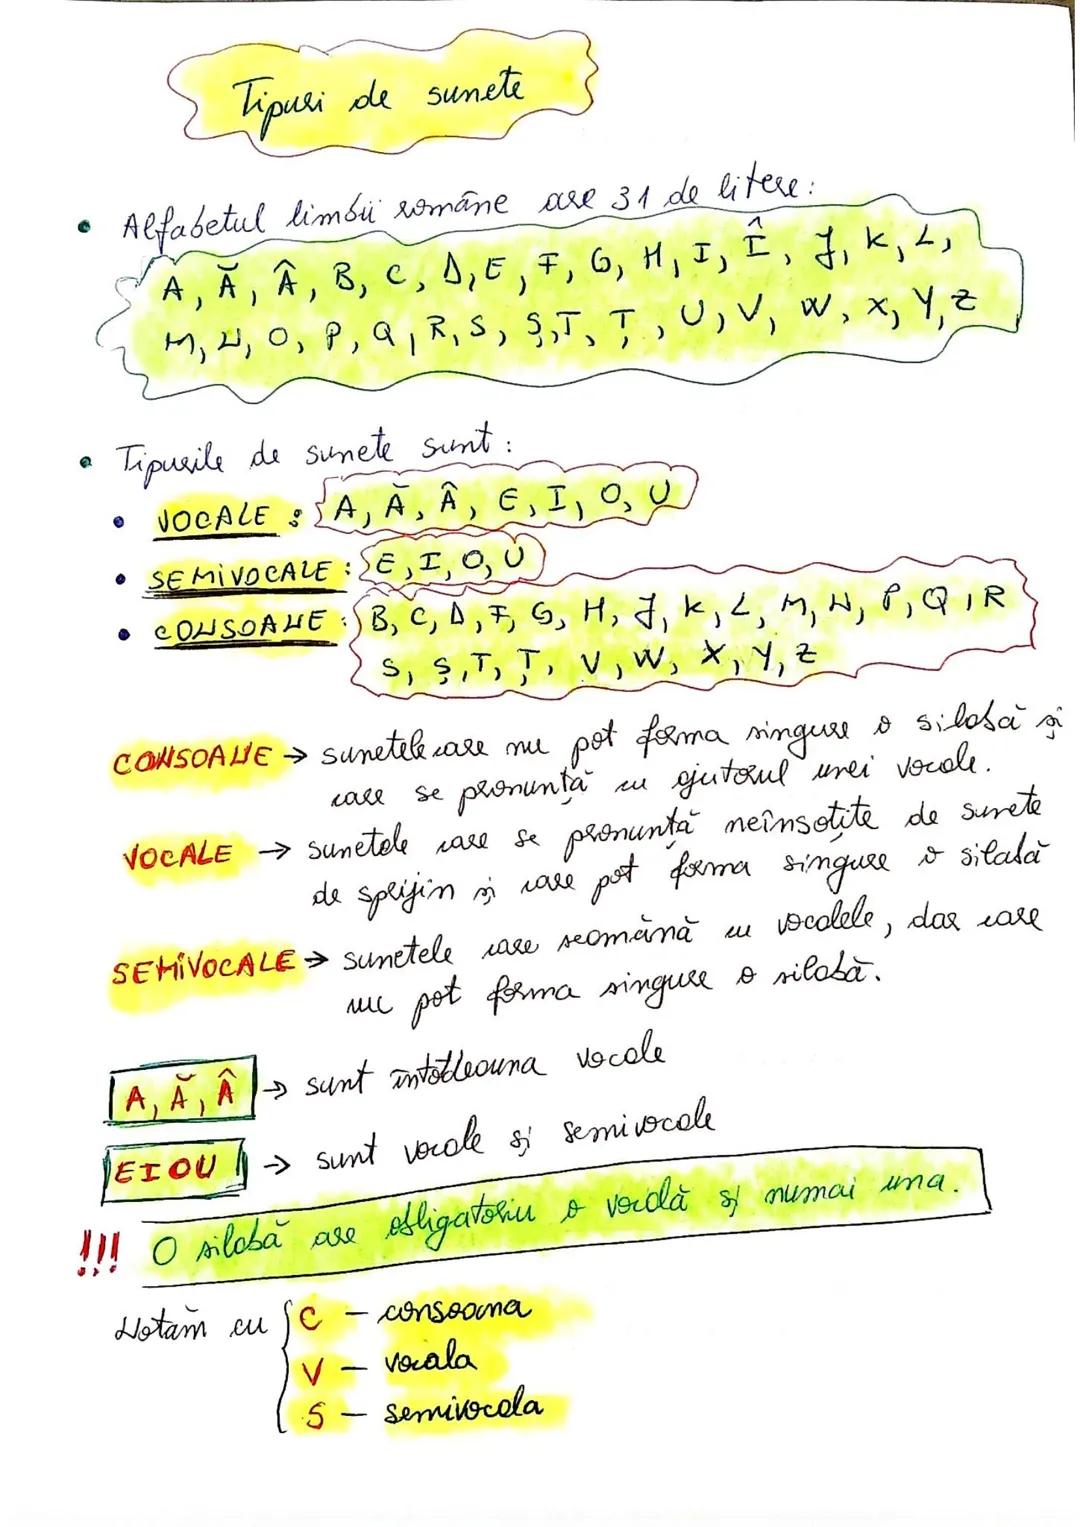 Tipuri de sunete
• Alfabetul limbii române are 31 de litere:
A, Ă, Â, B, C, D, E, F, G, H, I, Î, J, K, L,
M, N, O, P, Q, R, S, Ș, T, Ț, U, V, W, X, Y, Z
• Tipurile de sunete sunt:
• VOCALE: A, Ă, Â, E, I, O, U
• SEMIVOCALE: E, I, O, U
• CONSOANE: B, C, D, F, G, H, J, K, L, M, N, P, Q, R
S, Ș, T, Ț, V, W, X, Y, Z
CONSOANE → sunetele care nu pot forma singure o silabă și
care se pronunță cu ajutorul unei vocale.
VOCALE → sunetele care se pronunță neînsoțite de sunete
de sprijin și care pot forma singure o silabă
SEMIVOCALE → sunetele care seamănă cu vocalele, dar care
nu pot forma singure o silabă.
A, Ă, Â → sunt întotdeauna vocale
E I O U → sunt vocale și semivocale
!!! O silabă are obligatoriu o vocală și numai una.
Notăm cu { C – consoana
V – vocala
S – semivocala